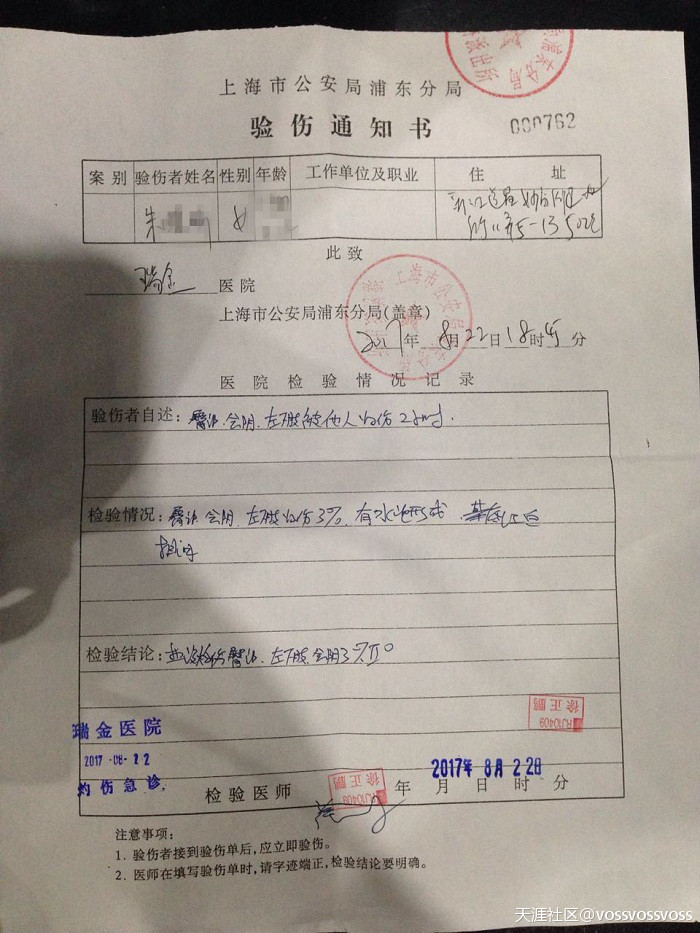 上海市公安局浦东分局
验伤通知书
000762
案别 验伤者姓名 性别 年龄 工作单位及职业 住址
朱 女
5-13 502
此致
瑞金 医院
上海市公安局浦东分局(盖章)
2017年8月22日18时45分
医院检验情况记录
验伤者自述:臀部、会阴、左下肢被他人灼伤2小时.
检验情况:臀部、会阴、左下肢灼伤3%,有水泡形成
检验结论:臀部、左下肢、会阴3%II°
徐正鹏
RJ10409
瑞金医院
2017-08-22
灼伤急诊
检验医师 年 月 日 时 分
徐正鹏
RJ10409
2017年8月22日
注意事项:
1. 验伤者接到验伤单后,应立即验伤。
2. 医师在填写验伤单时,请字迹端正,检验结论要明确。
天涯社区@vossvossvoss